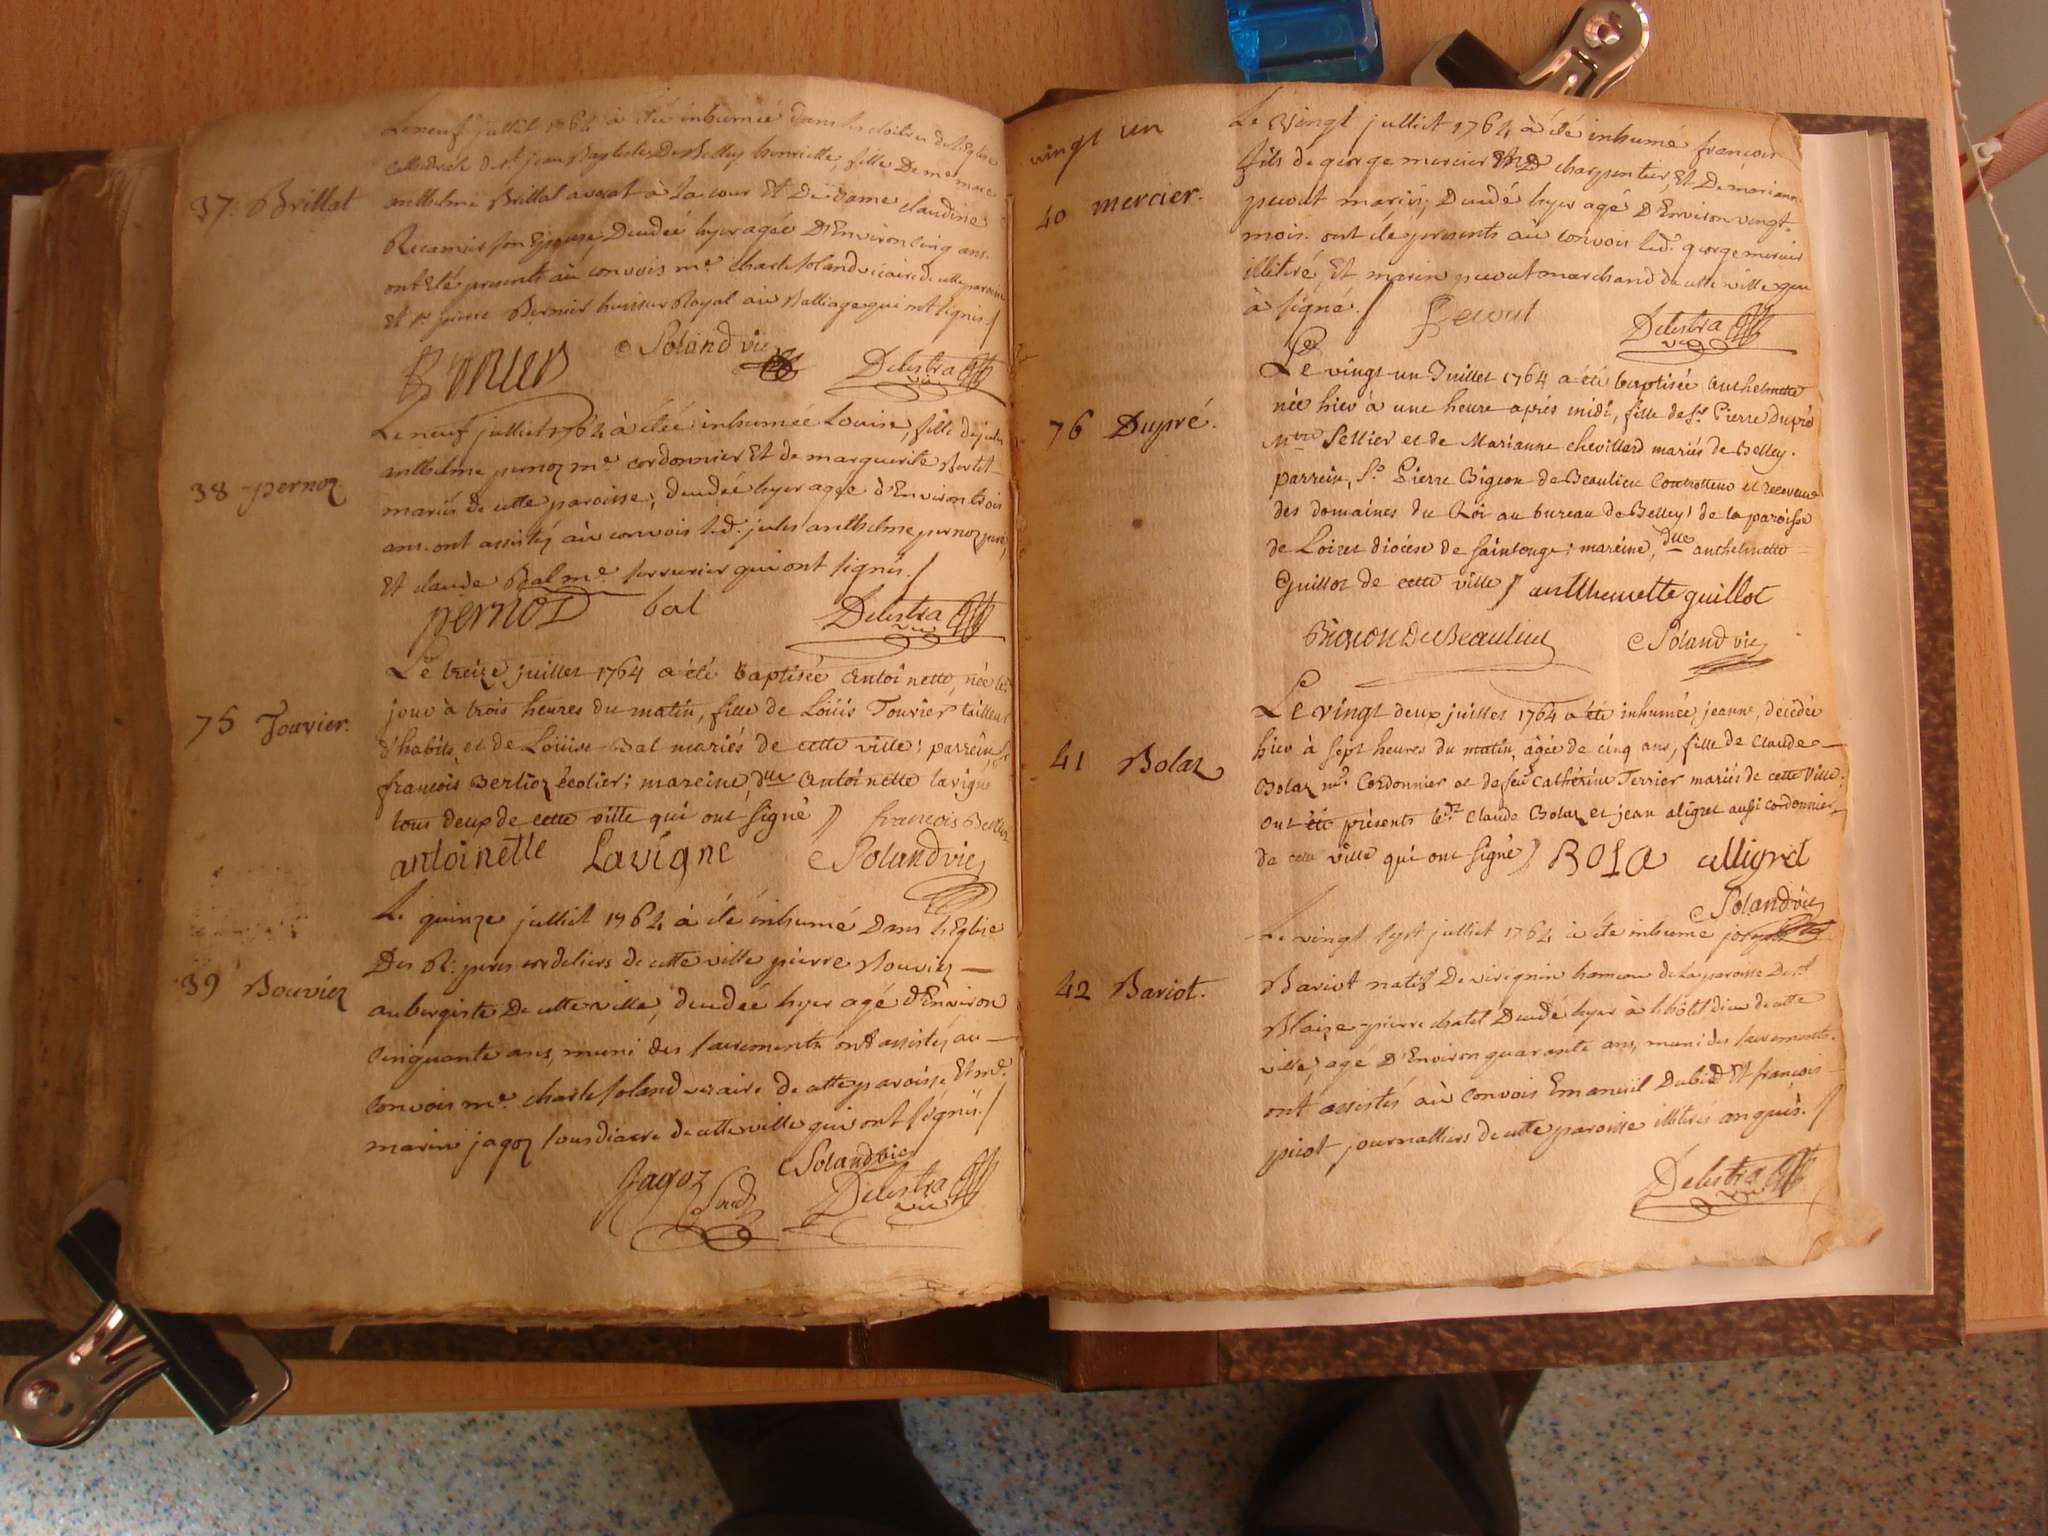 Le neuf juillit 1764 à été inhumée dans les cloitres de l'Eglise
Cathedrale de st. jean Baptiste De Belley henriette, fille De me marc
37. Brillat
anthelme Brillat avocat à La cour Et De Dame claudine
Recamier son Epouse, Decedée hyer agée D'Environ cinq ans.
ont Eté presents au convois me. charle Soland vicaire de cette paroisse
Et sr. pierre Bernier huissier Royal au Balliage qui ont signés./
C Soland vic
Delestra vic
Le neuf juillit 1764 à été inhumée Louise, fille de jules
anthelme pernoz me. cordonnier Et de marguerite Bertet
38 - pernoz
mariés de cette paroisse, decedée hyer agée d'Environ trois
ans. ont assistés au convois led. jules anthelme pernoz pere,
Et claude Bal me. serrurier qui ont signés./
pernoz bal Delestra vic
Le treize juillet 1764 a été baptisée Antoinette, née led.
75 Jouvier.
jour à trois heures du matin, fille de Loüis Jouvier tailleur
d'habits, et de Loüise Bal mariés de cette ville; parrein, sr
françois Berlioz écolier; mareine, dlle Antoinette lavigne
tous deux de cette ville qui ont signé // francois Berlioz
antoinette Lavigne C Soland vic
Le quinze juillit 1764 à été inhumé Dans L'Eglise
Des R. peres cordeliers de cette ville pierre Bouvier
39 Bouvier
aubergiste De cette ville, decedée hyer agé d'Environ
Cinquante ans, muni des sacrements ont assistés au
Convois me. charle Soland vicaire de cette paroisse Et me.
marin jagoz sousdiacre de cette ville qui ont signés./
Jagoz C Soland vic
Delestra vic
vingt un
Le Vingt juillit 1764 à été inhumé françois
fils de george mercier me charpentier, Et De mariane
40 mercier.
pecout mariés, Decedé hyer agé D'Environ vingt
mois. ont été presents au convois led. george mercier
illitéré, Et marin pecout marchand de cette ville qui
à signé./ Pecout Delestra vic
Le vingt un Juillet 1764 a été baptisée Anthelmette
née hier à une heure après midi, fille de sr. Pierre Dupré
76 Dupré.
Mtre Sellier et de Marianne Chevillard mariés de Belley.
parrein, Sr. Pierre Bigeon de Beaulieu Controlleur et receveur
des domaines du Roi au bureau de Belley, de la paroisse
de Loires diocèse de Saintonge; mareine, dlle anthelmette
Guillot de cette ville // anthelmette guillot
Bigeon De Beaulieu C Soland vic
Le vingt deux juillet 1764 a été inhumée, jeanne, décédée
hier à sept heures du matin, âgée de cinq ans, fille de Claude
41 Bolaz
Bolaz me. Cordonnier et de feue Cathérine Terrier mariés de cette ville;
ont été présents lesd. Claude Bolaz et jean aligret aussi cordonnier
de cette ville qui ont signé // BOLA alligret
C Soland vic
Le vingt sept juillit 1764 à été inhumé joseph
42 Bariot.
Bariot natif De virignin hameau de La paroisse De st.
Blaise-pierre chatel Decedé hyer à L'hôtel dieu de cette
ville, agé D'Environ quarante ans, muni des sacrements.
ont assistés au Convois Emanuel Dubied Et françois
picot journalliers de cette paroisse illitérés anquis./
Delestra vic